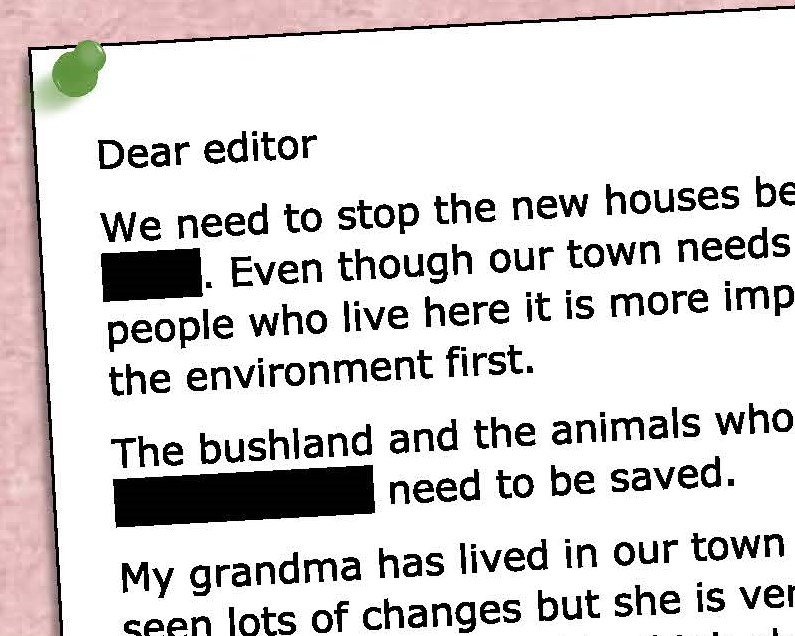 Dear editor
We need to stop the new houses be
. Even though our town needs
people who live here it is more imp
the environment first.
The bushland and the animals who
need to be saved.
My grandma has lived in our town
seen lots of changes but she is ver